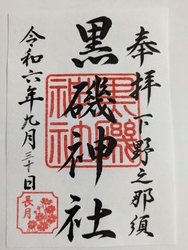 奉拝 下野之那須
黒磯神社
令和六年九月三十日
黒磯神社
長月